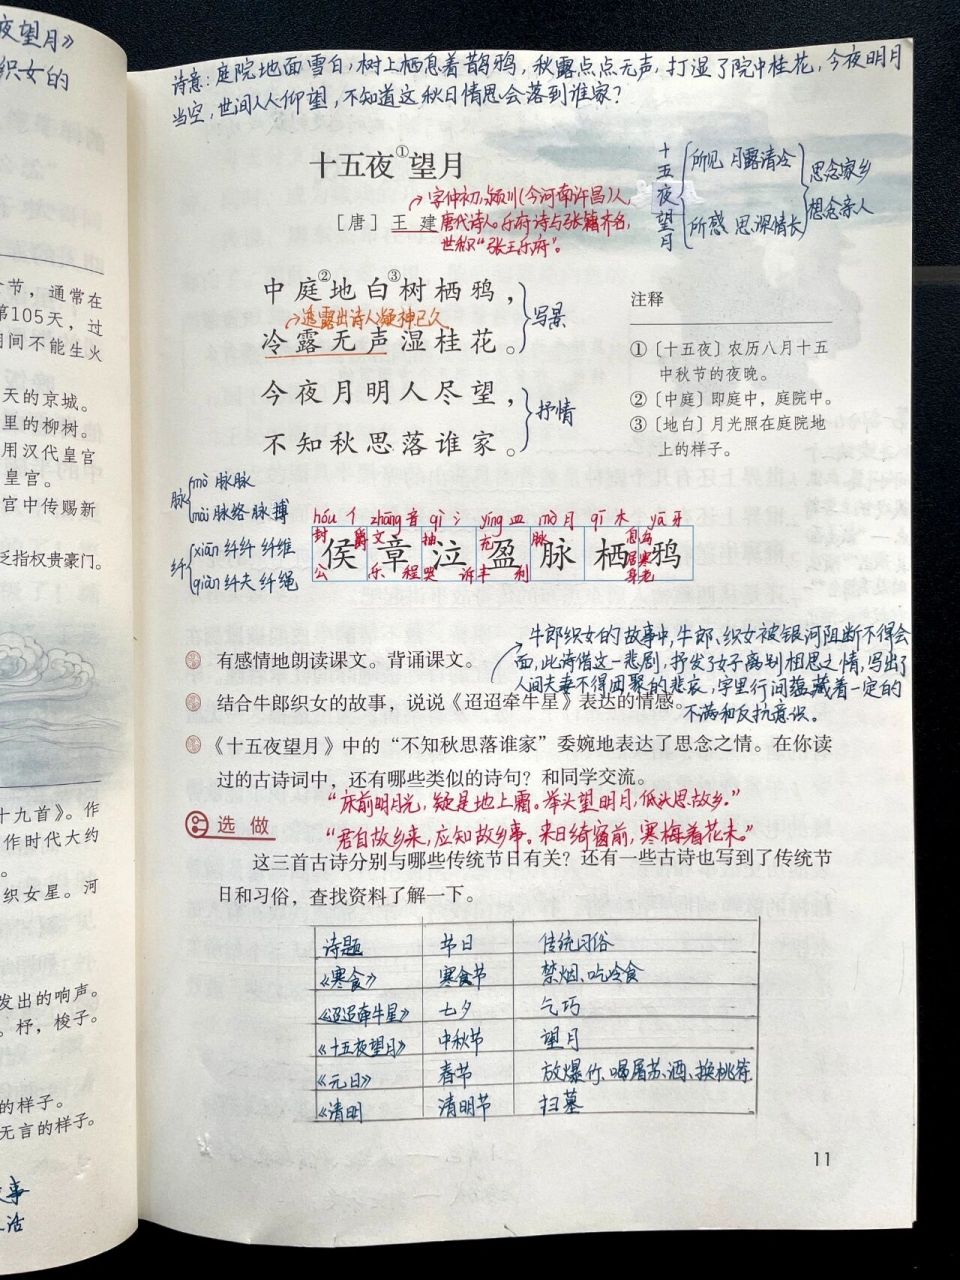 夜望月》
织女的
节，通常在
第105天，过
期间不能生火
天的京城。
里的柳树。
用汉代皇宫
皇宫。
宫中传赐新
泛指权贵豪门。
十九首》。作
作时代大约
织女星。河
发出的响声。
。杼，梭子。
的样子。
无言的样子。
事
活
诗意：庭院地面雪白，树上栖息着鹊鸦，秋露点点无声，打湿了院中桂花，今夜明月
当空，世间人人仰望，不知道这秋日情思会落到谁家？
十五夜①望月
字仲初，颍川（今河南许昌）人，
[唐] 王 建 唐代诗人。乐府诗与张籍齐名，
世称“张王乐府”。
十五夜望月
所见 月露清冷
所感 思深情长
思念家乡
想念亲人
中庭②地白③树栖鸦，
透露出诗人凝神已久
冷露无声湿桂花。
写景
今夜月明人尽望，
不知秋思落谁家。
抒情
注释
①〔十五夜〕农历八月十五
中秋节的夜晚。
②〔中庭〕即庭中，庭院中。
③〔地白〕月光照在庭院地
上的样子。
脉 mò 脉脉
mài 脉络 脉搏
纤 xiān 纤纤 纤维
qiàn 纤夫 纤绳
hóu 亻 zhāng 音 qì 氵 yíng 皿 mò 月 qī 木 yā 牙
侯 章 泣 盈 脉 栖 鸦
牛郎织女的故事中，牛郎、织女被银河阻断不得会
面，此诗借这一悲剧，抒发了女子离别相思之情，写出了
人间夫妻不得团聚的悲哀，字里行间蕴藏着一定的
不满和反抗意识。
有感情地朗读课文。背诵课文。
结合牛郎织女的故事，说说《迢迢牵牛星》表达的情感。
《十五夜望月》中的“不知秋思落谁家”委婉地表达了思念之情。在你读
过的古诗词中，还有哪些类似的诗句？和同学交流。
“床前明月光，疑是地上霜。举头望明月，低头思故乡。”
选做
“君自故乡来，应知故乡事。来日绮窗前，寒梅着花未。”
这三首古诗分别与哪些传统节日有关？还有一些古诗也写到了传统节
日和习俗，查找资料了解一下。
诗题 节日 传统习俗
《寒食》 寒食节 禁烟、吃冷食
《迢迢牵牛星》 七夕 乞巧
《十五夜望月》 中秋节 望月
《元日》 春节 放爆竹、喝屠苏酒、换桃符
《清明 清明节 扫墓
11